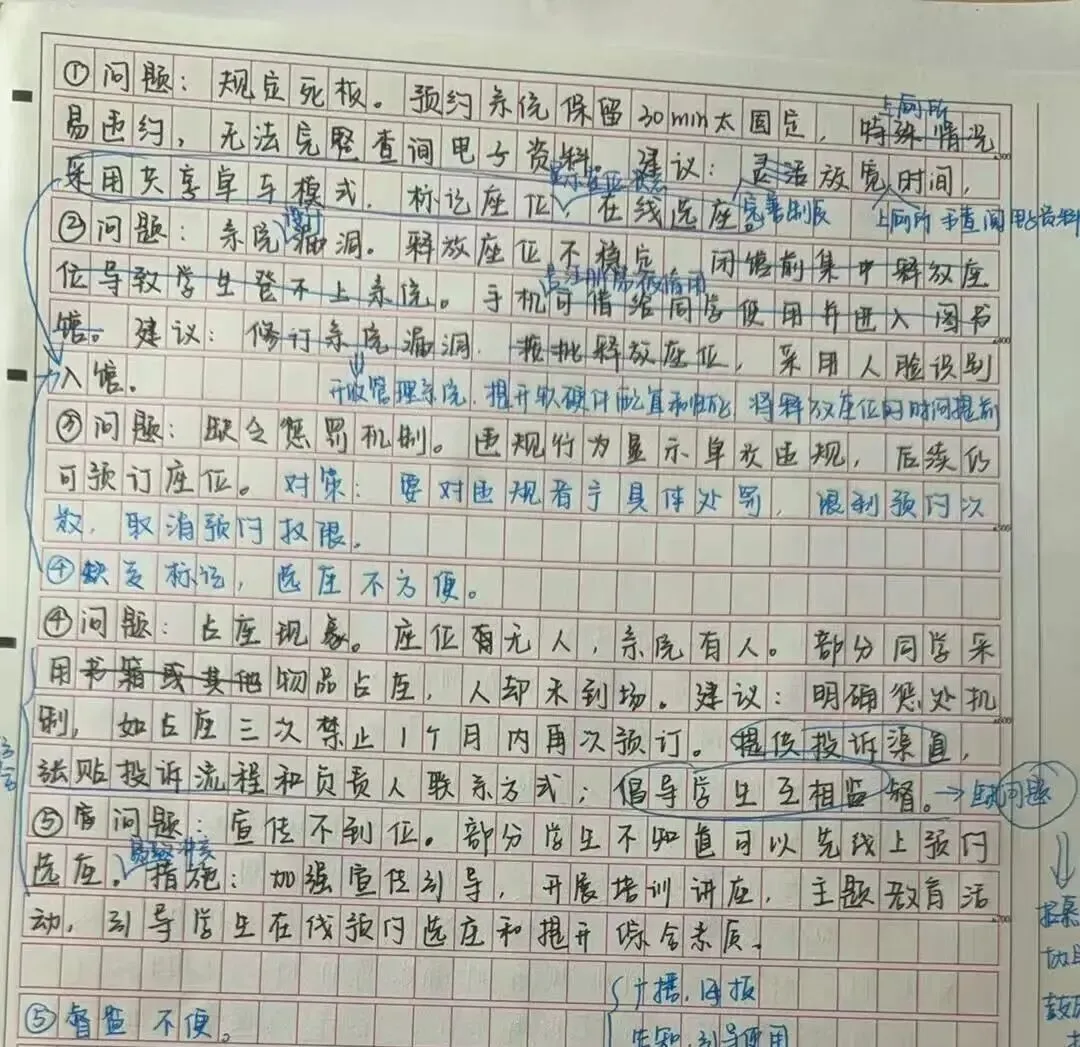 ①问题：规定死板。预约系统保留30min太固定，特殊情况
上厕所
易违约，无法完整查询电子资料。建议：灵活放宽时间，
采用共享单车模式，标记座位，在线选座。
显示座位状态
完善制度
上厕所
②问题：系统漏洞。释放座位不稳定，闭馆前集中释放座
位导致学生登不上系统。手机可借给同学使用并进入图书
馆。建议：修订系统漏洞，按批释放座位，采用人脸识别
入馆。
升级管理系统，提升软硬件配置和性能，将释放座位的时间提前
③问题：缺乏惩罚机制。违规行为显示单次违规，后续仍
可预订座位。对策：要对违规者予具体处罚，限制预约次
数，取消预约权限。
④缺乏标记，选座不方便。
④问题：占座现象。座位有无人，系统有人。部分同学采
用书籍或其他物品占座，人却未到场。建议：明确惩处机
制，如占座三次禁止1个月内再次预订。提供投诉渠道，
张贴投诉流程和负责人联系方式；倡导学生互相监督。→
问题
⑤问题：宣传不到位。部分学生不知道可以先线上预约
选座。措施：加强宣传引导，开展培训讲座，主题教育活
易致冲突
动，引导学生在线预约选座和提升综合素质。
广播，海报
⑤督监不便。
告知，引导使用